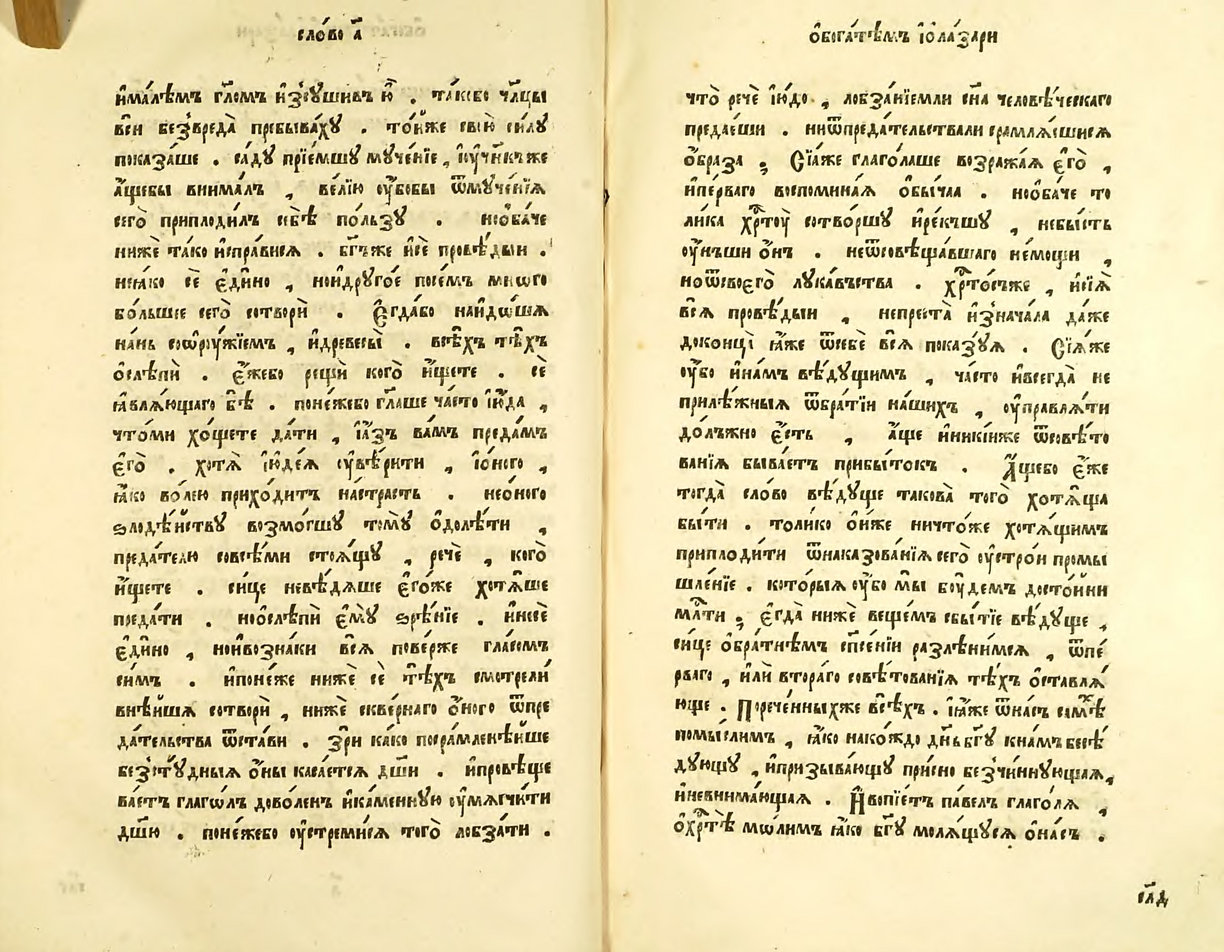 сло́во а҃
и҆ма́лѣмъ гл҃омъ и҆з̾ꙋши́въ ю҆̀ . та́кобо чл҃цы
вси без̾вреда̀ пребыва́хꙋ . то́йже свою̀ си́лꙋ
показа́ше . са́дꙋ прїе́мшꙋ мꙋче́нїе , и҆ꙋ҆чн҃къже
а҆́щебы внима́лъ , ве́лїю ᲂу҆́бобы ѿмꙋче́нїѧ
сего̀ приплоди́лъ себѣ̀ по́льзꙋ . нѡ҆ба́че
нижѐ та́ко и҆спра́висѧ . бг҃ъже и҆сѐ провѣ́дыи .
нето́кмо сѐ є҆ди́но , нои҆дрꙋго́е посе́мъ мно́го
бо́льшее сего̀ сотворѝ . Є҆гда́бо наидо́шѧ
на́нь соѡ҆рꙋ́жїемъ , и҆древесы̀ . всѣ́хъ тѣ́хъ
о҆слѣпѝ . є҆́жебо рещѝ кого̀ и҆́щете . сѐ
ꙗ҆влѧ́ющаго бѣ̀ . поне́жебо гл҃аше ча́сто і҆ю́да ,
что́ми хо́щете да́ти , і҆а҆́зъ ва́мъ преда́мъ
є҆го̀ . хотѧ̀ і҆юде́ѧ ᲂу҆вѣ́рити , і҆о҆́ного ,
ꙗ҆́ко во́лею прихо́дитъ настра́сть . нео́ного
ѕлодѣ́йствꙋ возмо́гшꙋ томꙋ̀ ѻ҆долѣ́ти ,
преда́телю совсѣ́ми стоѧ́щꙋ , речѐ , кого̀
и҆́щете . си́це невѣ́дѧше є҆го́же хотѧ́ше
преда́ти . нѡ҆слѣпѝ є҆мꙋ̀ ѕрѣ́нїе . и҆несѐ
є҆ди́но , нои҆во́знаки всѧ̀ пове́рже гла́сомъ
си́мъ . и҆поне́же нижѐ сѐ тѣ́хъ смотре́ли
внѣ́йшѧ сотворѝ , нижѐ скве́рнаго о҆́ного ѿпре
да́тельства ѿста́ви . зрѝ ка́ко посра́мленнѣйше
без̾стꙋ́дныѧ о҆́ны каса́етсѧ дш҃и . и҆провѣще
ва́етъ глаго́лъ дово́ленъ и҆ка́меннꙋю ᲂу҆мѧгчи́ти
дш҃ю . поне́жебо ᲂу҆стреми́сѧ того̀ лобза́ти .
ѻ҆бога́тѣмъ і҆ѻ҆ла́зари
что̀ речѐ і҆ю́до , лобза́нїемли сн҃а человѣ́ческаго
предае́ши . ниѿпреда́тельствали срамлѧ́ешисѧ
о҆́браза ; Сїѧ́же глаго́лаше возража́ѧ є҆го̀ ,
и҆пе́рваго воспомина́ѧ о҆бы́чаа . нѡ҆ба́че то
ли́ка хр҇тоу̀ сотво́ршꙋ и҆ре́кшꙋ , небы́сть
ᲂу҆́ншьи о҆́нъ . неѿсовѣщава́вшаго не́мощи ,
ноѿсвоегѡ̀ лꙋка́въства . хр҇то́съже , и҆сїѧ̀
всѧ̀ провѣ́дыи , непреста̀ и҆з̾нача́ла да́же
доконца̀ ꙗ҆́же ѿсебѐ всѧ̀ показꙋ́ѧ . Сїѧ́же
ᲂу҆́бо и҆на́мъ вѣ́дꙋщимъ , ча́сто и҆всегда̀ не
прилѣ́жныѧ ѿбра́тїи на́шихъ , ᲂу҆правлѧ́ти
до́лъжно є҆́сть , а҆́ще и҆никі́иже ѿсовѣ́то
ва́нїѧ быва́етъ прибы́токъ . А҆́щебо є҆́же
тогда̀ сло́во вѣ́дꙋще такова̀ того̀ хотѧ́ща
бы́ти . толи́ко о҆ни́же ничто́же хотѧ́щимъ
приплоди́ти ѿнаказова́нїѧ сего̀ ᲂу҆стро́и промы
шле́нїе . кото́рыѧ ᲂу҆́бо мы̀ бꙋ́демъ досто́йни
мл҇ти ; є҆гда̀ нижѐ веще́мъ сбы́тїе вѣ́дꙋще ,
си́це о҆бра́тнѣмъ сп҃се́нїи разлѣни́мсѧ , ѿпе
рваго , и҆лѝ втора́го совѣ́тованїѧ тѣ́хъ о҆ставлѧ́
юще . Порече́нныхже всѣ́хъ . і҆ꙗ҆́же ѿна́съ самѣ́хъ
помы́слимъ , ꙗ҆́ко нако́ждо дн҃ь бг҃ꙋ кна́мъ бесѣ́
дꙋющꙋ , и҆призыва́ющꙋ при́сно без̾чи́ннꙋющаѧ,
и҆невнима́ющаѧ . И҆вопїе́тъ па́велъ глаго́лѧ ,
ѻ҆хр҇тѣ̀ мо́лимъ ꙗ҆́ко бг҃ꙋ молѧ́щꙋсѧ о҆на́съ .
сл҃д